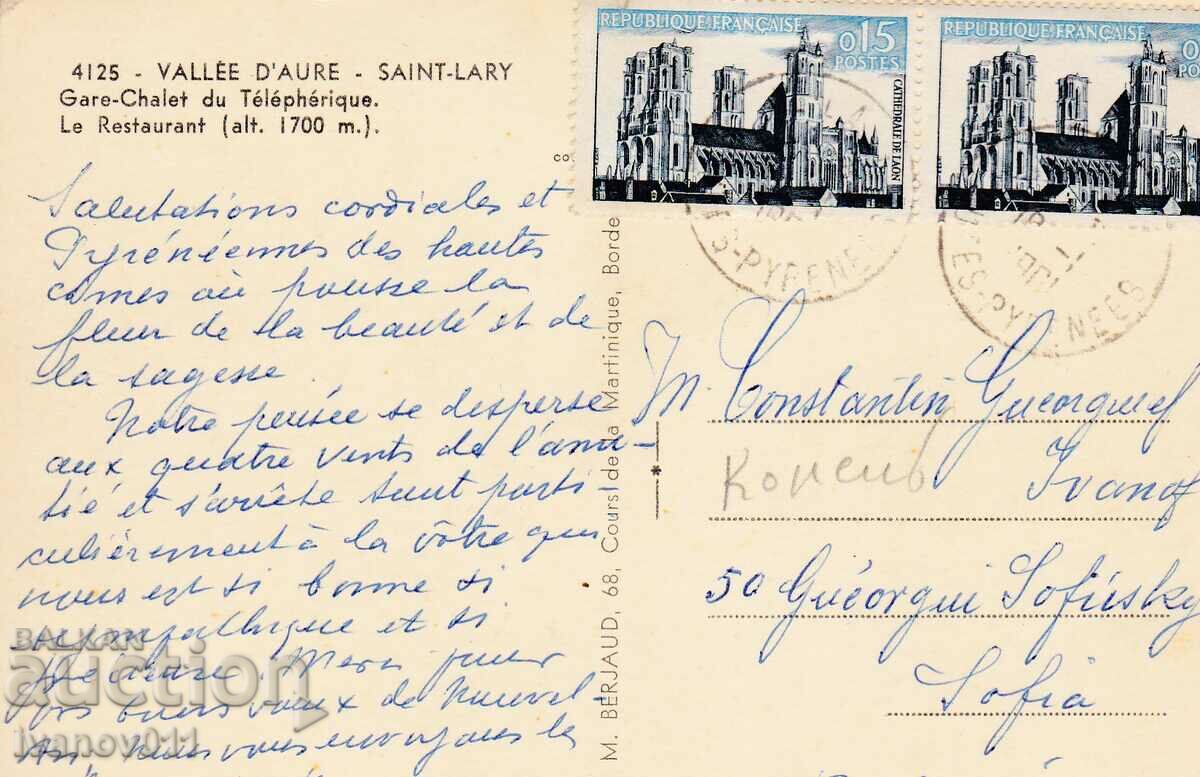 4125 - VALLÉE D'AURE - SAINT-LARY
Gare-Chalet du Téléphérique.
Le Restaurant (alt. 1700 m.).
Salutations cordiales et
Pyrénéennes des hautes
cimes où pousse la
fleur de la beauté et de
la sagesse.
Notre pensée se disperse
aux quatre vents de l'ami-
tié et s'arrête tout parti-
culièrement à la vôtre qui
nous est si bonne si
sympathique et si
. Merci pour
vos bons voeux de Nouvel-
An. Nous vous envoyons les
M. BERJAUD, 68, Cours de la Martinique, Borde
REPUBLIQUE FRANÇAISE
0,15
POSTES
CATHEDRALE DE LAON
REPUBLIQUE FRANÇAISE
0
POSTES
S-PYRENEE
TES-PYRENEES
M. Constantin Guéorguief
Ivanof
50 Guéorgui Sofiisky
Sofia
BALKAN
auction
ivanov011